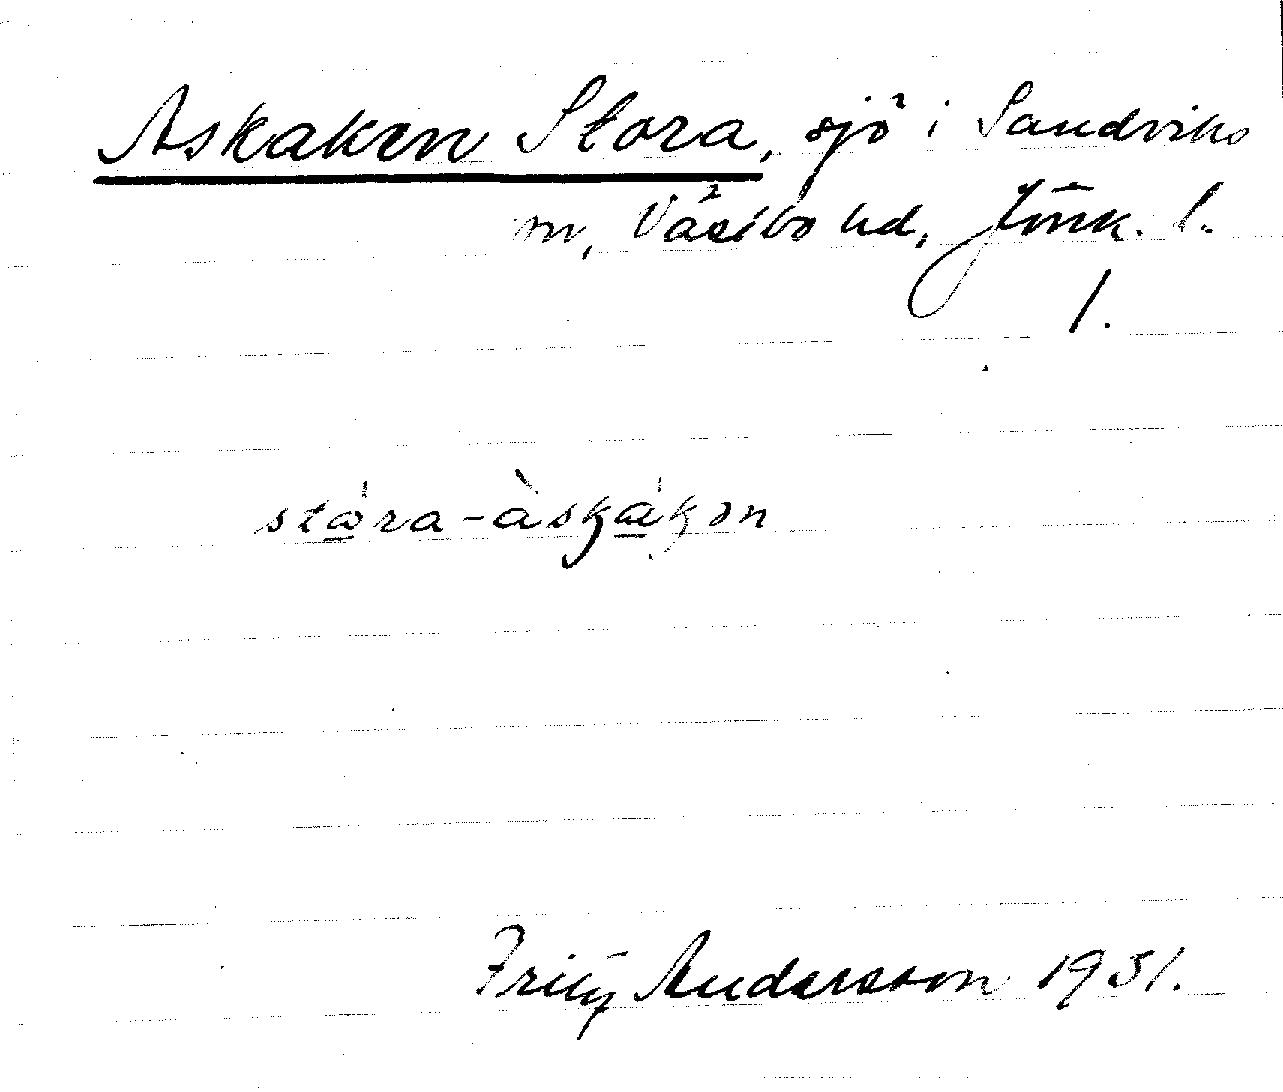 Askaken Stora, sjö i Sandviks
sn, Västbo hd, Jönk. l.
1.
stóra-àskákən
Fritz Andersson 1931.